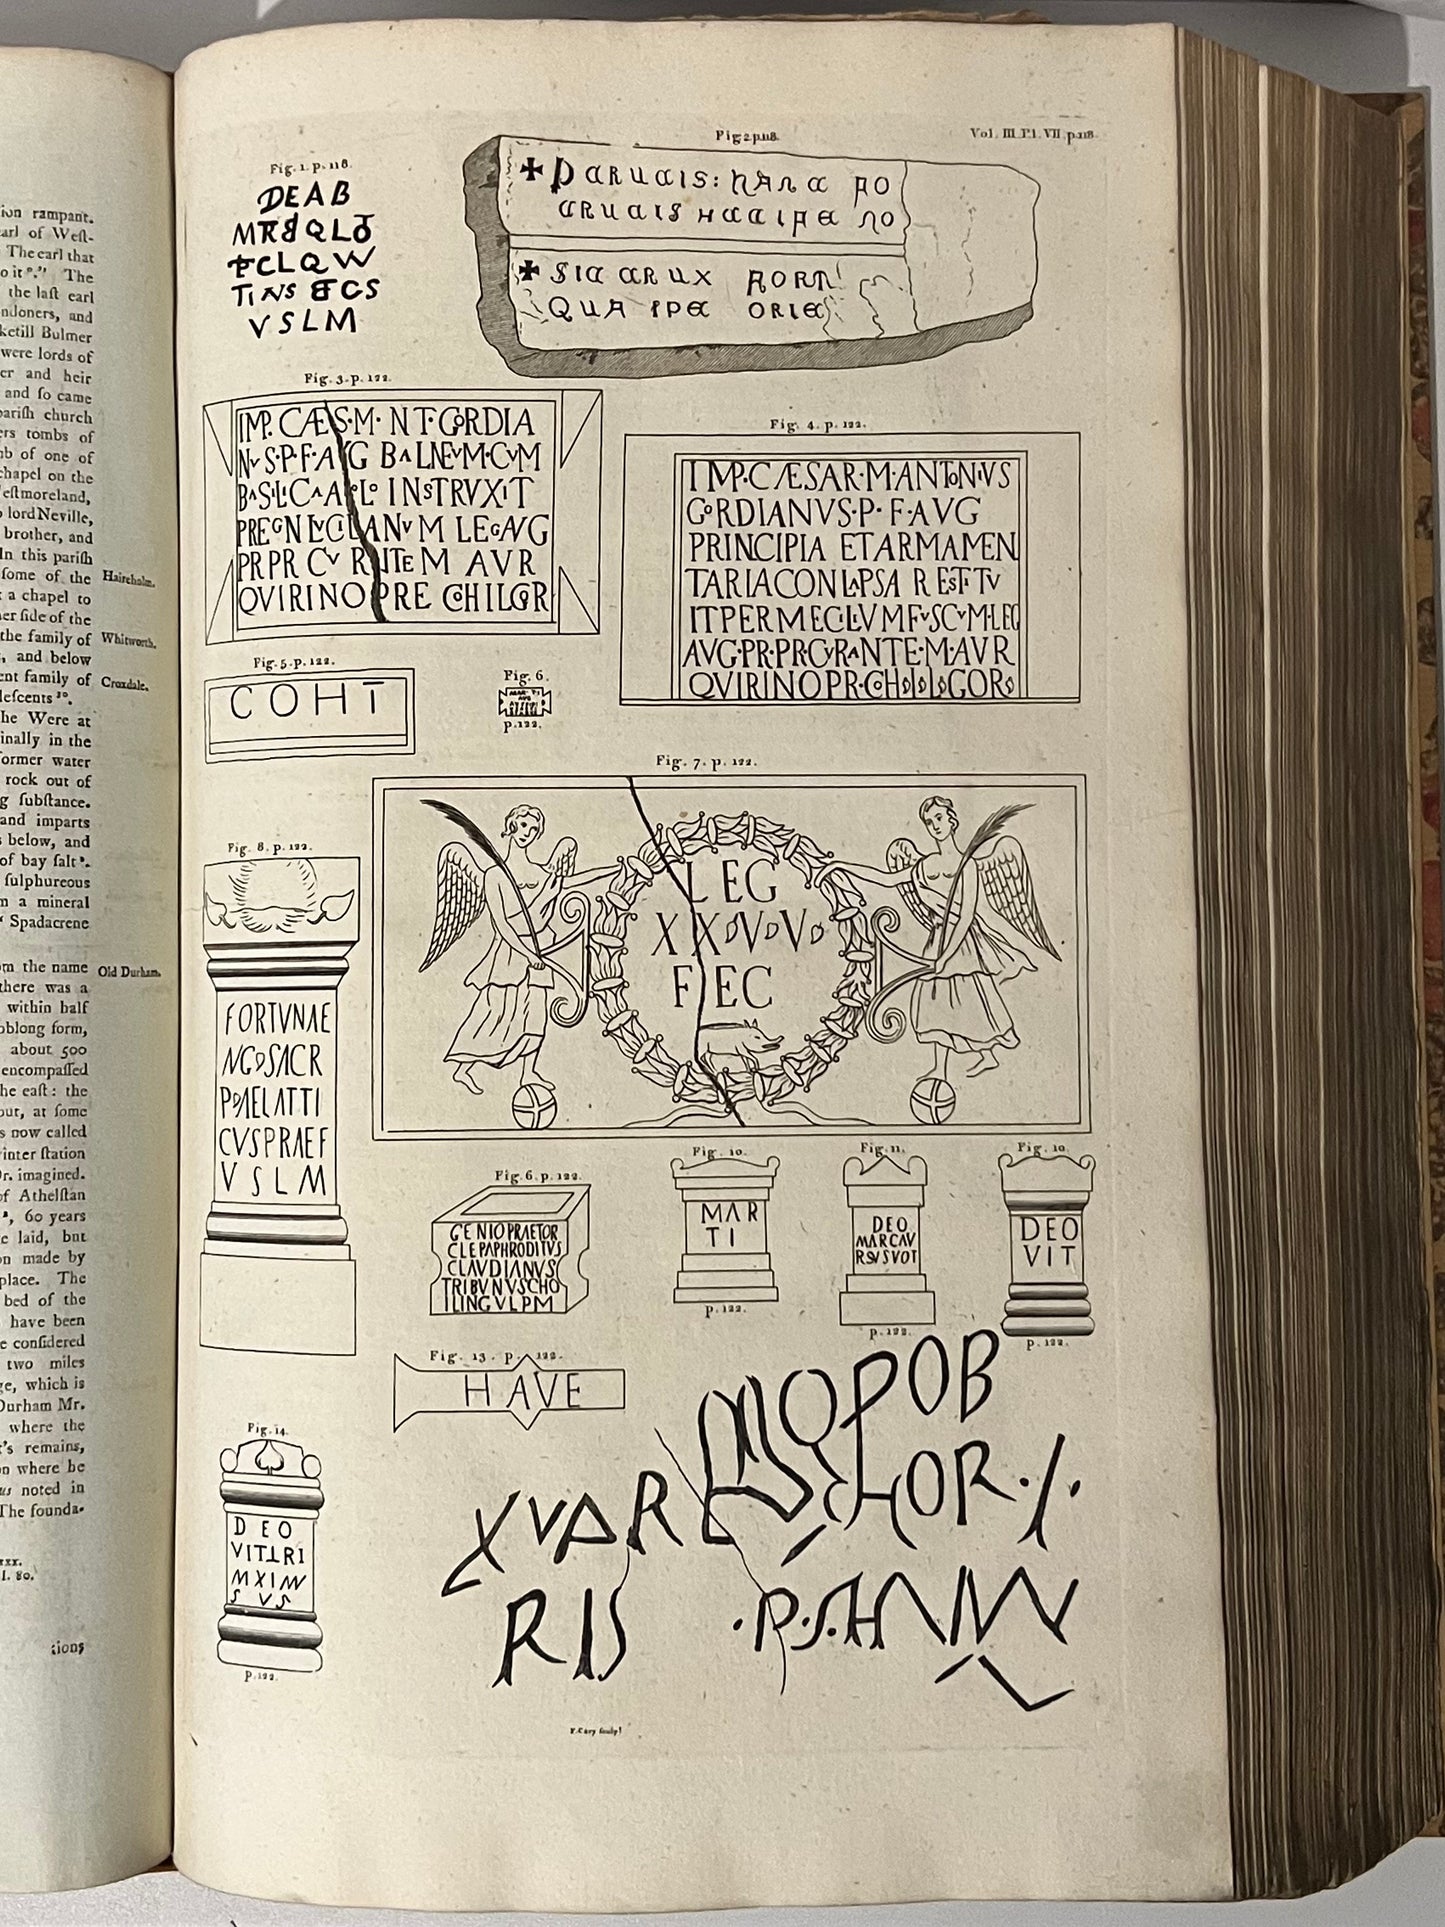 ion rampant.
arl of West-
The earl that
o it °." The
the last earl
ndoners, and
ketill Bulmer
were lords of
er and heir
and so came
parish church
ers tombs of
mb of one of
chapel on the
estmoreland,
lord Neville,
brother, and
In this parish
some of the
a chapel to
her side of the
the family of
, and below
ent family of
descents ³⁰.
he Were at
inally in the
former water
rock out of
g substance.
and imparts
s below, and
of bay salt ˢ.
sulphureous
m a mineral
Spadacrene
om the name
there was a
within half
oblong form,
about 500
encompassed
he east: the
out, at some
s now called
inter station
Dr. imagined.
of Athelstan
, 60 years
e laid, but
on made by
place. The
bed of the
have been
e considered
two miles
ge, which is
Durham Mr.
where the
's remains,
on where he
us noted in
The founda-
xxx.
l. 80.
tions
Haireholm.
Whitworth.
Croxdale.
Old Durham.
Vol. III. Pl. VII. p. 118.
Fig. 1. p. 118.
DEAB
VSLM
Fig 2 p. 118.
✠ SIC CRUX
QUA IPE ORIE
Fig. 3. p. 122.
IMP. CÆS·M· NT·GORDIA
NVS·P·F·AVG BALNEVM·CVM
BASILICA A SOLO INSTRVXIT
PREGN LVCILANVM LEGAVG
PRPR CVRNTE M AVR
QVIRINO PRE COHILGR
Fig. 4. p. 122.
IMP·CÆSAR·M·ANTONIVS
GORDIANVS·P·F·AVG
PRINCIPIA ET ARMAMEN
TARIA CONLAPSA RESTITV
IT PER MECILIVM FVSCVM·LEG
AVG·PR·PR·CVRANTE·M·AVR
QVIRINO PR·COH·I·L·GOR
Fig. 5. p. 122.
COHT
Fig. 6.
MAR TI
AVG
p. 122.
Fig. 7. p. 122.
LEG
XX V V
FEC
Fig. 8. p. 122.
FORTVNAE
NG SACR
P AEL ATTI
CVS PRAEF
V S L M
Fig. 6. p. 122.
GENIO PRAETOR
CL EPAPHRODITVS
CLAVDIANVS
TRIBVNVSCHO
ILINGVLPM
Fig. 10.
MAR
TI
p. 122.
Fig. 11.
DEO
MARCAV
p. 122.
Fig. 10.
DEO
VIT
p. 122.
Fig. 13. p. 122.
HAVE
Fig. 14.
DEO
VITIRI
MXIM
S VS
p. 122.
POB
XVAR LOR·I·
RIS ·P·S·
F. Cary sculp!